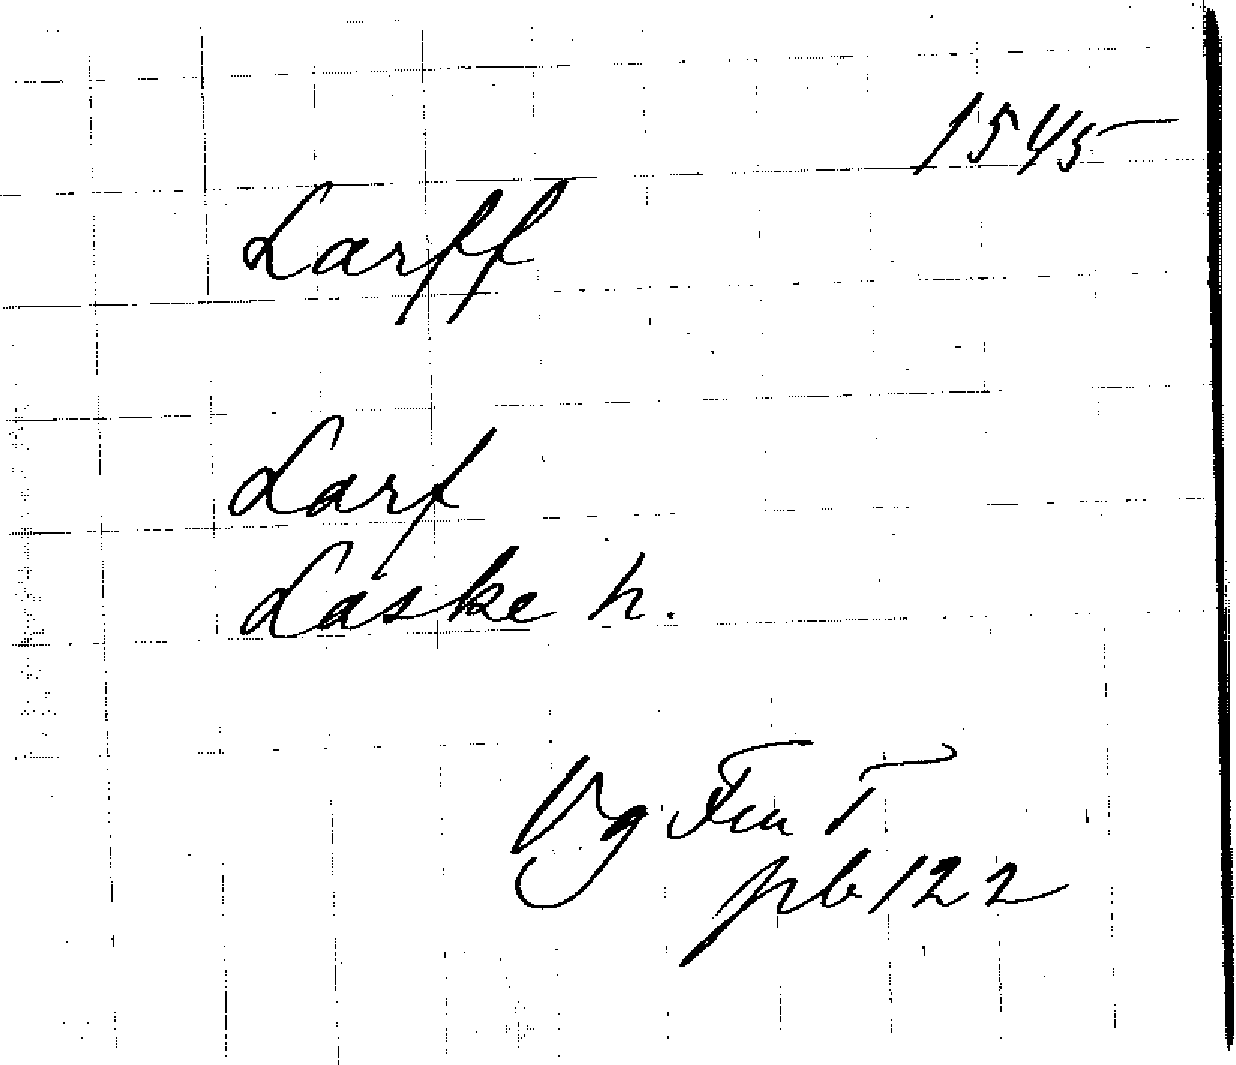 1545
Larff
Larf
Laske h.
Vg Fru T
pb 122